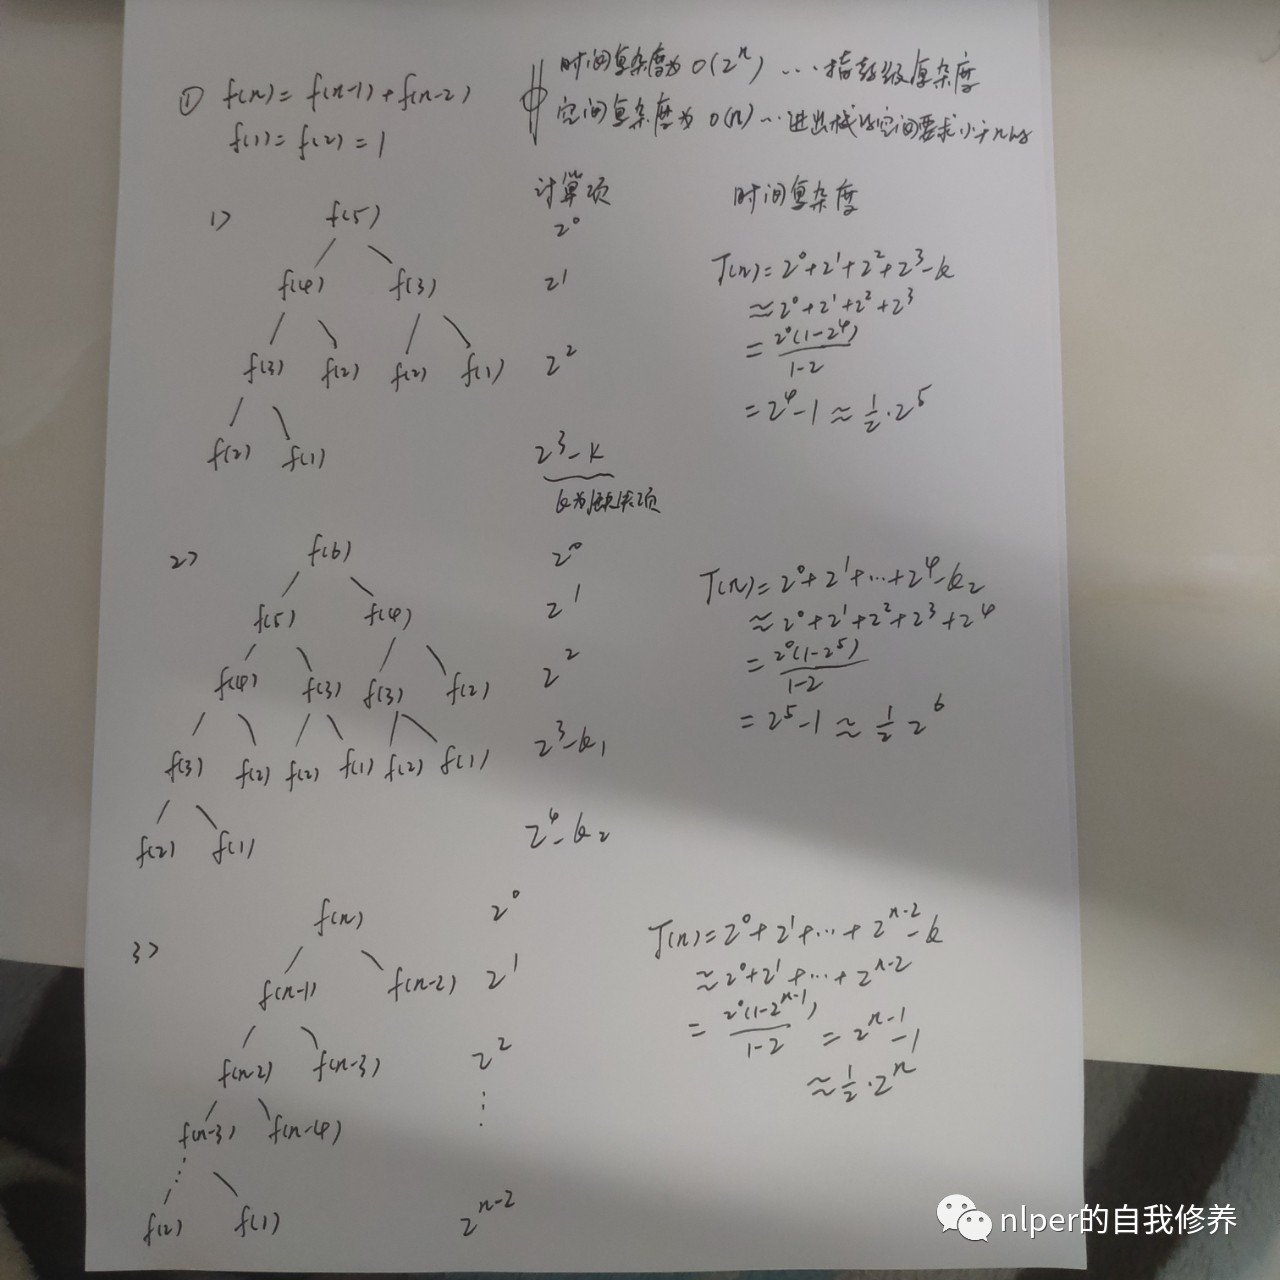 ① f(n) = f(n-1) + f(n-2)
f(1) = f(2) = 1
时间复杂度为 O(2^n) … 指数级复杂度
空间复杂度为 O(n) … 进出栈的空间要求小于n
计算项
时间复杂度
1>
f(5)
2^0
f(4) f(3)
2^1
f(3) f(2) f(2) f(1)
2^2
f(2) f(1)
2^3-k
k为缺失项
T(n) = 2^0+2^1+2^2+2^3-k
≈ 2^0+2^1+2^2+2^3
= 2^0(1-2^4)/(1-2)
= 2^4-1 ≈ 1/2·2^5
2>
f(6)
2^0
f(5) f(4)
2^1
f(4) f(3) f(3) f(2)
2^2
f(3) f(2) f(2) f(1) f(2) f(1)
2^3-k_1
f(2) f(1)
2^4-k_2
T(n) = 2^0+2^1+…+2^4-k_2
≈ 2^0+2^1+2^2+2^3+2^4
= 2^0(1-2^5)/(1-2)
= 2^5-1 ≈ 1/2 2^6
3>
f(n)
2^0
f(n-1) f(n-2)
2^1
f(n-2) f(n-3)
2^2
f(n-3) f(n-4)
⋮
f(2) f(1)
2^{n-2}
T(n) = 2^0+2^1+…+2^{n-2}-k
≈ 2^0+2^1+…+2^{n-2}
= 2^0(1-2^{n-1})/(1-2) = 2^{n-1}-1
≈ 1/2·2^n
nlper的自我修养